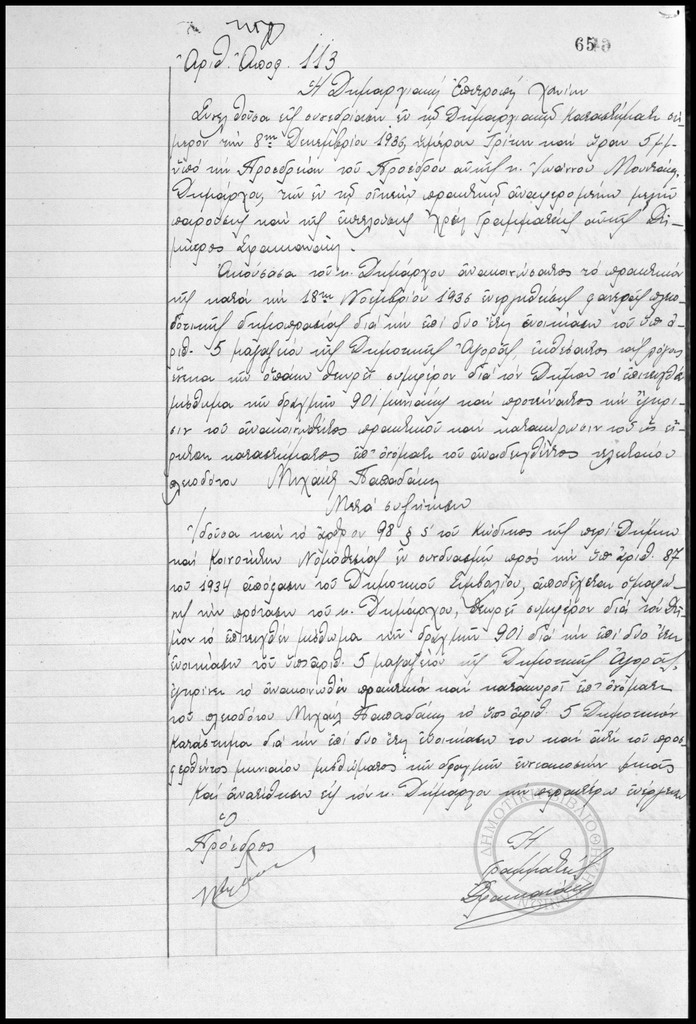 65
Ἀριθ. Ἀποφ. 113
Ἡ Δημαρχιακή Ἐπιτροπή Χανίων
Συνελθοῦσα εἰς συνεδρίασιν ἐν τῷ Δημαρχιακῷ Καταστήματι σή-
μερον τήν 8ην Δεκεμβρίου 1936, ἡμέραν Τρίτην καί ὥραν 5 μ.μ.
ὑπό τήν Προεδρείαν τοῦ Προέδρου αὐτῆς κ. Ἰωάννου Μουντάκη
Δημάρχου, τῶν ἐν τῷ οἰκείῳ πρακτικῷ ἀναφερομένων μελῶν
παρόντων καί τῆς ἐκτελούσης χρέη Γραμματέως αὐτῆς Δη-
μήτρας Σφακιανάκη.
Ἀκούσασα τοῦ κ. Δημάρχου ἀνακοινώσαντος τό πρακτικόν
τῆς κατά τήν 18ην Νοεμβρίου 1936 ἐνεργηθείσης φανερᾶς πλειο-
δοτικῆς δημοπρασίας διά τήν ἐπί δύο ἔτη ἐνοικίασιν τοῦ ὑπ' ἀ-
ριθ. 5 μαγαζείου τῆς Δημοτικῆς Ἀγορᾶς, ἐκθέσαντος τούς λόγους
ἕνεκα τῶν ὁποίων θεωρεῖ συμφέρον διά τόν Δῆμον τό ἐπιτευχθέν
μίσθωμα τῶν δραχμῶν 901 μηνιαίως καί προτείναντος τήν ἔγκρι-
σιν τοῦ ἀνακοινωθέντος πρακτικοῦ καί κατακύρωσιν τοῦ ὡς εἴ-
ρηται καταστήματος ἐπ' ὀνόματι τοῦ ἀναδειχθέντος τελευταίου
πλειοδότου Μιχαήλ Παπαδάκη
Μετά συζήτησιν
Ἰδοῦσα καί τό ἄρθρον 98 § 5 τοῦ Κώδικος τῆς περί Δήμων
καί Κοινοτήτων Νομοθεσίας ἐν συνδυασμῷ πρός τήν ὑπ' ἀριθ. 87
τοῦ 1934 ἀπόφασιν τοῦ Δημοτικοῦ Συμβουλίου, ἀποδέχεται ὁμοφώ-
νως τήν πρότασιν τοῦ κ. Δημάρχου, θεωρεῖ συμφέρον διά τόν Δῆ-
μον τό ἐπιτευχθέν μίσθωμα τῶν δραχμῶν 901 διά τήν ἐπί δύο ἔτη
ἐνοικίασιν τοῦ ὑπ' ἀριθ. 5 μαγαζείου τῆς Δημοτικῆς Ἀγορᾶς,
ἐγκρίνει τό ἀνακοινωθέν πρακτικόν καί κατακυροῖ ἐπ' ὀνόματι
τοῦ πλειοδότου Μιχαήλ Παπαδάκη τό ὑπ' ἀριθ. 5 Δημοτικόν
Κατάστημα διά τήν ἐπί δύο ἔτη ἐνοικίασιν του καί ἀντί τοῦ προσ-
φερθέντος μηνιαίου μισθώματος τῶν δραχμῶν ἐννεακοσίων μιᾶς
Καί ἀνατίθησιν εἰς τόν κ. Δήμαρχον τήν περαιτέρω ἐνέργειαν
Ὁ
Πρόεδρος
Ἡ
Γραμματεύς
Σφακιανάκη
ΔΗΜΟΤΙΚΗ ΒΙΒΛΙΟΘΗΚΗ ΧΑΝΙΩΝ